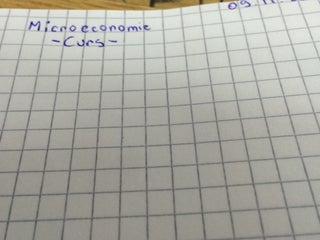 09.11.
Microeconomie
-Curs-